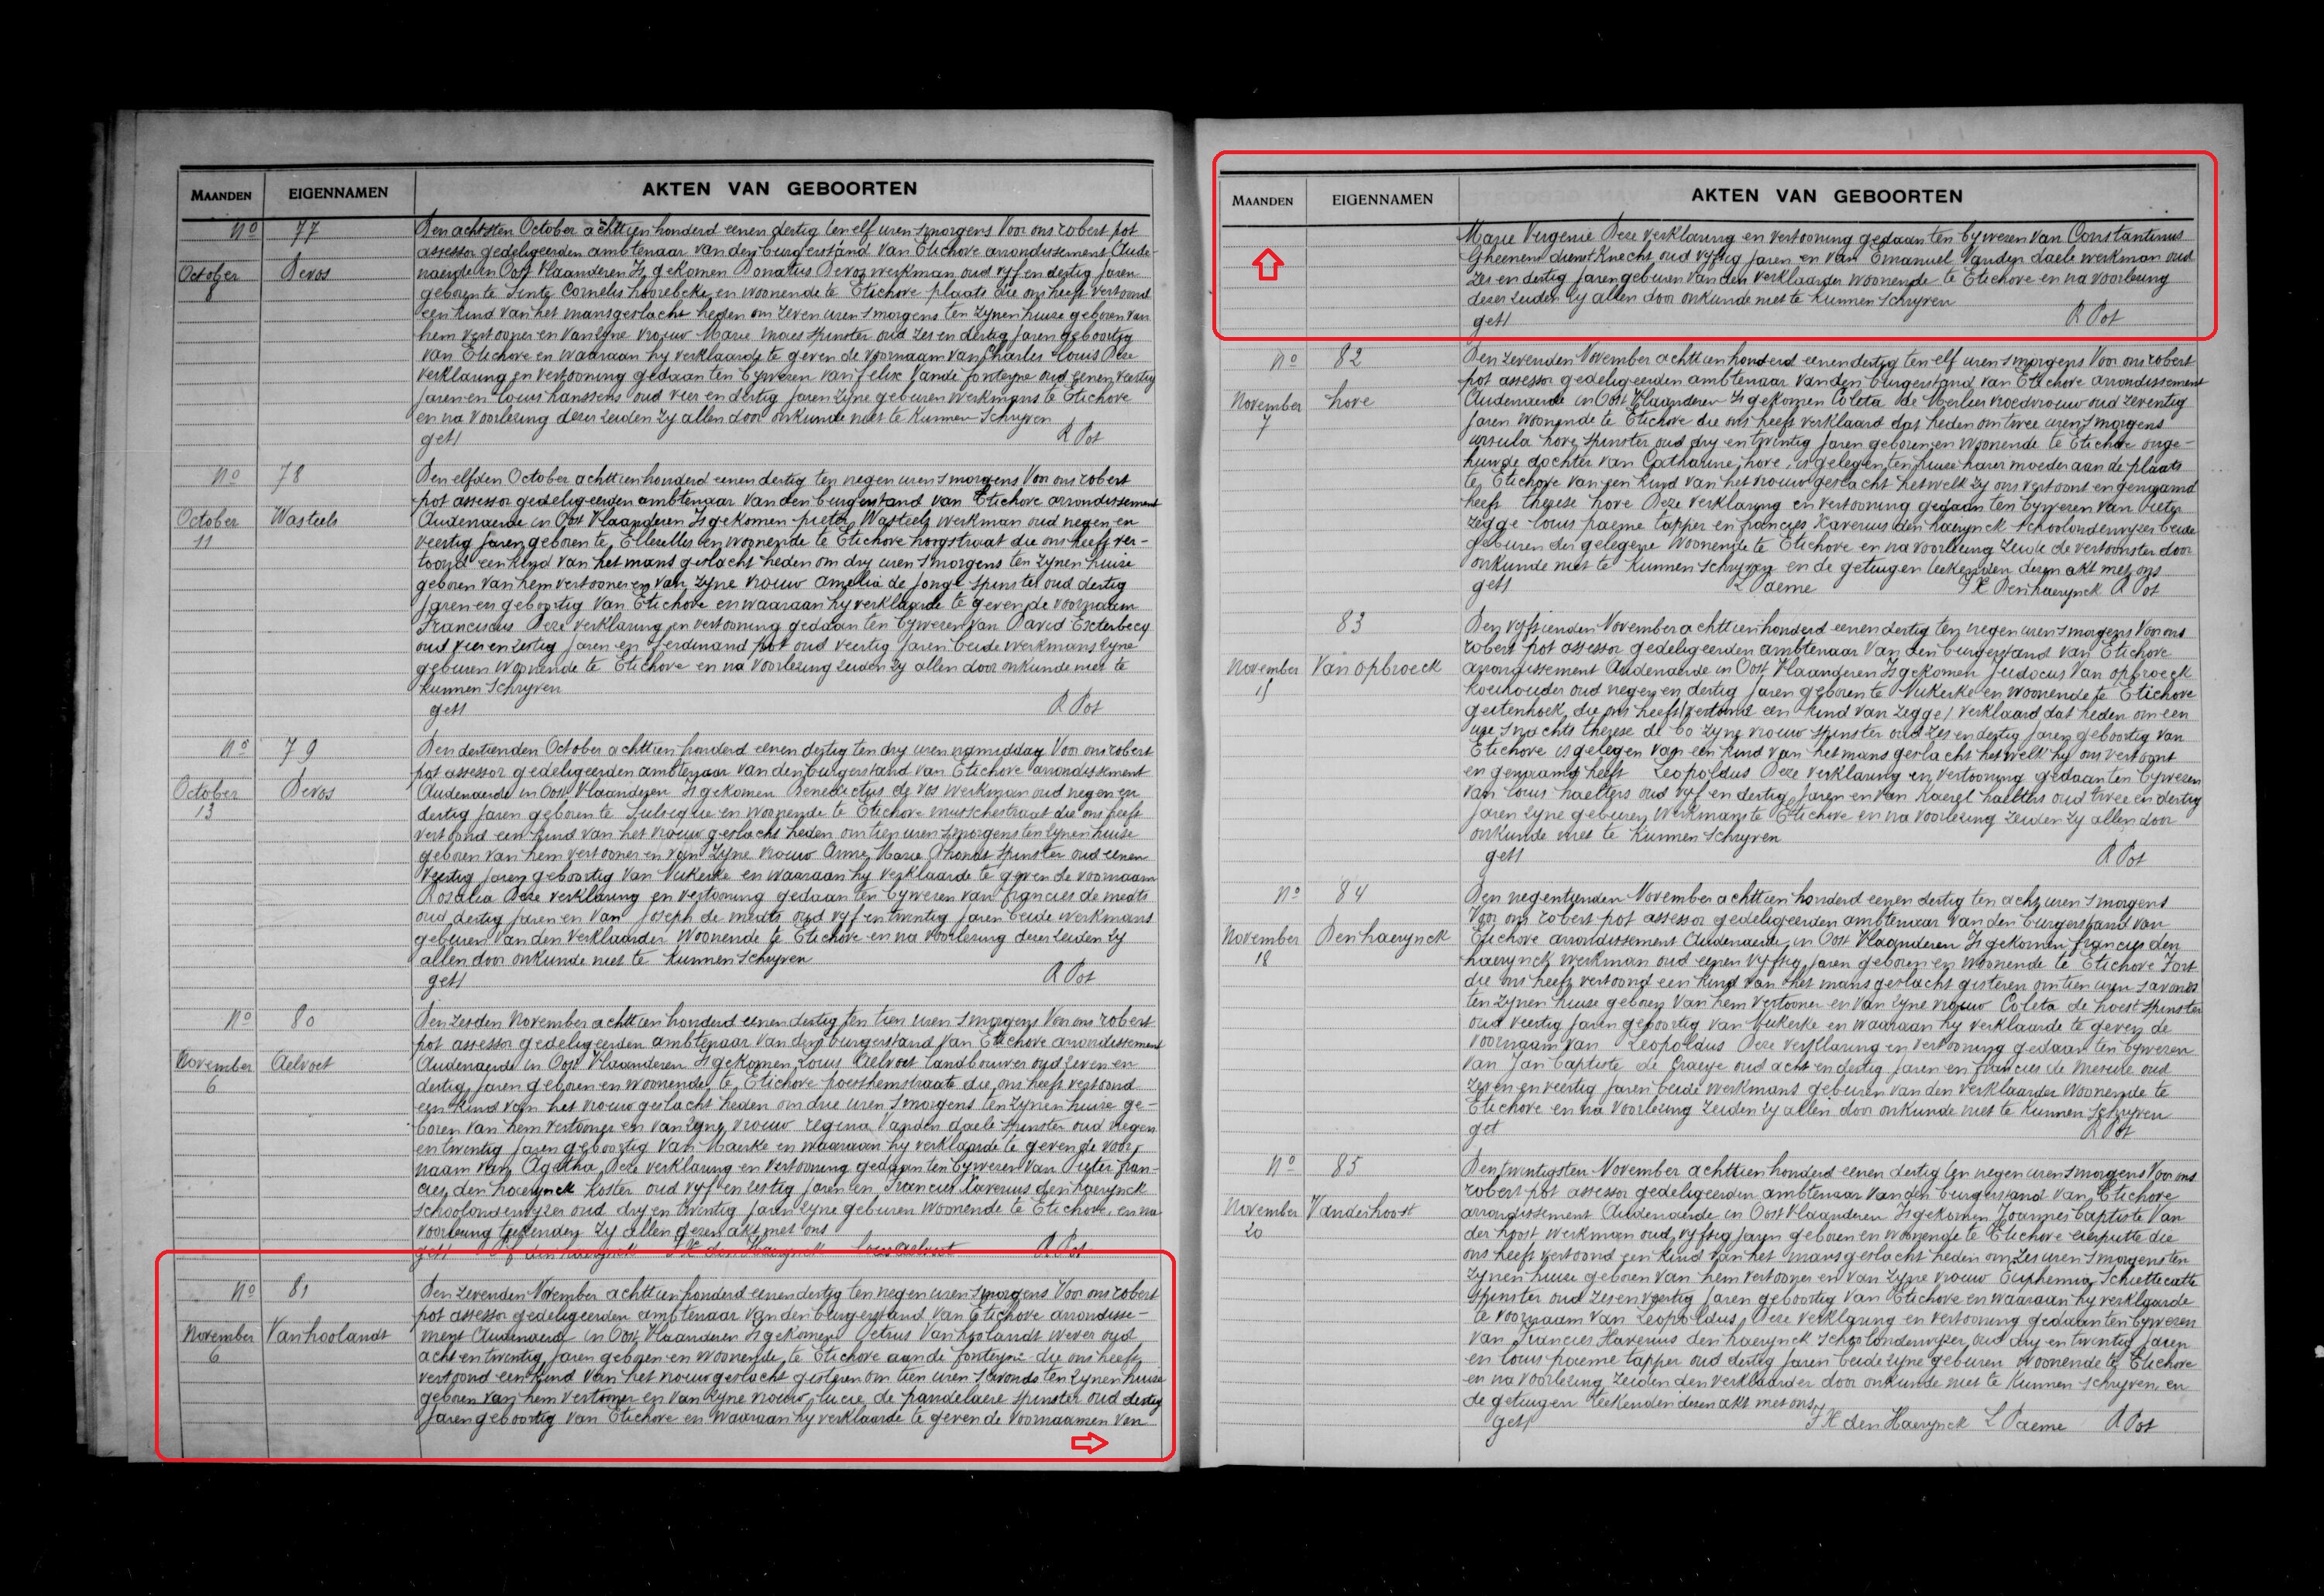 MAANDEN EIGENNAMEN AKTEN VAN GEBOORTEN
No 77 Den achtsten October achttien honderd eenen dertig ten elf uren smorgens Voor ons robert pot
assessor gedeligeerden ambtenaar van den burgerstand van Etichove arrondissement Aude-
October Devos naerde in Oost Vlaanderen Is gekomen Donatus Devos werkman oud vyf en dertig Jaren
8 geboren te Sinte Cornelis hoorebeke en woonende te Etichove plaats die ons heeft vertoond
een kind van het mansgeslacht heden om zeven uren smorgens ten zynen huise geboren van
hem vertooner en van zyne vrouw Marie maes spinster oud zes en dertig Jaren geboortig
van Etichove en waaraan hy verklaarde te geven de voornaam van Charles Louis Deze
verklaring en vertooning gedaan ten bywezen van felix Vande fonteyne oud eenen veertig
Jaren en louis hanssens oud vier en dertig Jaren zyne geburen werkmans te Etichove
en na voorlezing dezer zeiden zy allen door onkunde niet te kunnen Schryven
get/ R Pot
No 78 Den elfden October achttien honderd eenen dertig ten negen uren smorgens Voor ons robert
pot assessor gedeligeerden ambtenaar van den burgerstand van Etichove arrondissement
October Wasteels Audenaerde in Oost Vlaanderen Is gekomen pieter Wasteels werkman oud negen en
11 veertig Jaren geboren te Ellezelles en woonende te Etichove hoogstraat die ons heeft ver-
toond een kind van het mans geslacht heden om dry uren smorgens ten zynen huise
geboren van hem vertooner en van zyne vrouw Amelia de Jonge spinster oud dertig
Jaren en geboortig van Etichove en waaraan hy verklaarde te geven de voornaam
Franciscus Deze verklaring en vertooning gedaan ten bywezen van David Exterbecq
oud vier en zestig Jaren en ferdinand pot oud veertig Jaren beide werkmans zyne
geburen woonende te Etichove en na voorlezing zeiden zy allen door onkunde niet te
kunnen Schryven
get/ R Pot
No 79 Den dertienden October achttien honderd eenen dertig ten dry uren namiddag Voor ons robert
pot assessor gedeligeerden ambtenaar van den burgerstand van Etichove arrondissement
October Devos Audenaerde in Oost Vlaanderen Is gekomen Benedictus de vos werkman oud negen en
13 dertig Jaren geboren te Sulsicque en woonende te Etichove musschestraat die ons heeft
vertoond een kind van het vrouw geslacht heden om tien uren smorgens ten zynen huise
geboren van hem vertooner en van zyne vrouw Anne Marie Dhondt spinster oud eenen
veertig Jaren geboortig van Nukerke en waaraan hy verklaarde te geven de voornaam
Rosalia Deze verklaring en vertooning gedaan ten bywezen van francies de medts
oud dertig Jaren en van Joseph de medts oud vyf en twintig Jaren beide werkmans
geburen van den verklaarder woonende te Etichove en na voorlezing dezer zeiden zy
allen door onkunde niet te kunnen Schryven
get/ R Pot
No 80 Den zesden November achttien honderd eenen dertig ten tien uren smorgens Voor ons robert
pot assessor gedeligeerden ambtenaar van den burgerstand van Etichove arrondissement
November Aelvoet Audenaerde in Oost Vlaanderen Is gekomen Louis Aelvoet landbouwer oud zeven en
6 dertig Jaren geboren en woonende te Etichove poesthemstraate die ons heeft vertoond
een kind van het vrouw geslacht heden om drie uren smorgens ten zynen huise ge-
boren van hem vertooner en van zyne vrouw regina Vanden daele spinster oud negen
en twintig Jaren geboortig van Maerke en waaraan hy verklaarde te geven de voor-
naam van Agatha Deze verklaring en vertooning gedaan ten bywezen van Pieter fran-
cies den haerynck koster oud vyf en zestig Jaren en Francies Xaverius den haerynck
schoolonderwyzer oud dry en twintig Jaren zyne geburen woonende te Etichove en na
voorlezing teekenden zy allen dezen akt met ons
get/ P f den haerynck F X den Haerynck louis aelvoet R Pot
No 81 Den zevenden November achttien honderd eenen dertig ten negen uren smorgens Voor ons robert
pot assessor gedeligeerden ambtenaar van den burgerstand van Etichove arrondisse-
November Vanhoolandt ment Audenaerde in Oost Vlaanderen Is gekomen Petrus Van hoolandt wever oud
6 acht en twintig Jaren geboren en woonende te Etichove aan de fonteyne die ons heeft
vertoond een kind van het vrouw geslacht gisteren om tien uren savonds ten zynen huise
geboren van hem vertooner en van zyne vrouw lucie de pandelaere spinster oud dertig
Jaren geboortig van Etichove en waaraan hy verklaarde te geven de voornaamen van
MAANDEN EIGENNAMEN AKTEN VAN GEBOORTEN
Marie Virginie Deze verklaring en vertooning gedaan ten bywezen van Constantinus
Gheenens dienst Knecht oud vyftig Jaren en van Emanuel Vanden daele werkman oud
zes en dertig Jaren geburen van den verklaarder woonende te Etichove en na voorlezing
dezer zeiden zy allen door onkunde niet te kunnen Schryven
get/ R Pot
No 82 Den zevenden November achttien honderd eenen dertig ten elf uren smorgens Voor ons robert
pot assessor gedeligeerden ambtenaar van den burgerstand van Etichove arrondissement
November hove Audenaerde in Oost Vlaanderen Is gekomen Coleta de Merlier vroedvrouw oud zeventig
7 Jaren woonende te Etichove die ons heeft verklaard dat heden om twee uren smorgens
ursula hove spinster oud dry en twintig Jaren geboren en woonende te Etichove onge-
huwde dochter van Catharine hove, is gelegen ten huise harer moeder aan de plaats
te Etichove van een kind van het vrouw geslacht hetwelk zy ons vertoont en genaamd
heeft therese hove Deze verklaring en vertooning gedaan ten bywezen van Pieter
zegge louis paeme tapper en francies Xaverius den haerynck schoolonderwyzer beide
geburen der gelegene woonende te Etichove en na voorlezing zeide de vertoonster door
onkunde niet te kunnen schryven en de getuigen teekenden dezen akt met ons
get/ L Paeme F X Den haerynck R Pot
83 Den vyftienden November achttien honderd eenen dertig ten negen uren smorgens Voor ons
robert pot assessor gedeligeerden ambtenaar van den burgerstand van Etichove
November Van opbroeck arrondissement Audenaerde in Oost Vlaanderen Is gekomen Judocus Van opbroeck
15 koeihouder oud negen en dertig Jaren geboren te Nukerke en woonende te Etichove
geitenhoek die ons heeft/vertoond een kind van zegge/ verklaard dat heden om een
ure snachts therese de bo zyne vrouw spinster oud zes en dertig Jaren geboortig van
Etichove is gelegen van een kind van het mans geslacht hetwelk hy ons vertoont
en genaamd heeft Leopoldus Deze verklaring en vertooning gedaan ten bywezen
van louis haelters oud vyf en dertig Jaren en van Kaerel haelters oud twee en dertig
Jaren zyne geburen werkmans te Etichove en na voorlezing zeiden zy allen door
onkunde niet te kunnen schryven
get/ R Pot
No 84 Den negentienden November achttien honderd eenen dertig ten acht uren smorgens
Voor ons robert pot assessor gedeligeerden ambtenaar van den burgerstand van
November Den haerynck Etichove arrondissement Audenaerde in Oost Vlaanderen Is gekomen francies den
18 haerynck werkman oud eenen vyftig Jaren geboren en woonende te Etichove Fort
die ons heeft vertoond een kind van het mans geslacht gisteren om tien uren savonds
ten zynen huise geboren van hem vertooner en van zyne vrouw Coleta de hoest spinster
oud veertig Jaren geboortig van Nukerke en waaraan hy verklaarde te geven de
voornaam van Leopoldus Deze verklaring en vertooning gedaan ten bywezen
van Jan baptiste de Craeye oud acht en dertig Jaren en francies de mesure oud
zeven en veertig Jaren beide werkmans geburen van den verklaarder woonende te
Etichove en na voorlezing zeiden zy allen door onkunde niet te kunnen schryven
get R Pot
No 85 Den twintigsten November achttien honderd eenen dertig ten negen uren smorgens Voor ons
robert pot assessor gedeligeerden ambtenaar van den burgerstand van Etichove
November Vanderhoost arrondissement Audenaerde in Oost Vlaanderen Is gekomen Joannes baptiste Van
20 der hoost werkman oud vyftig Jaren geboren en woonende te Etichove eierputte die
ons heeft vertoond een kind van het mans geslacht heden om zes uren smorgens ten
zynen huise geboren van hem vertooner en van zyne vrouw Euphemia Schietticatte
spinster oud zes en veertig Jaren geboortig van Etichove en waaraan hy verklaarde
te voornaam van Leopoldus Deze verklaring en vertooning gedaan ten bywezen
van Francies Xaverius den haerynck schoolonderwyzer oud dry en twintig Jaren
en louis paeme tapper oud dertig Jaren beide zyne geburen woonende te Etichove
en na voorlezing zeiden den verklaarder door onkunde niet te kunnen schryven en
de getuigen teekenden dezen akt met ons
get/ F X den Haerynck L Paeme R Pot